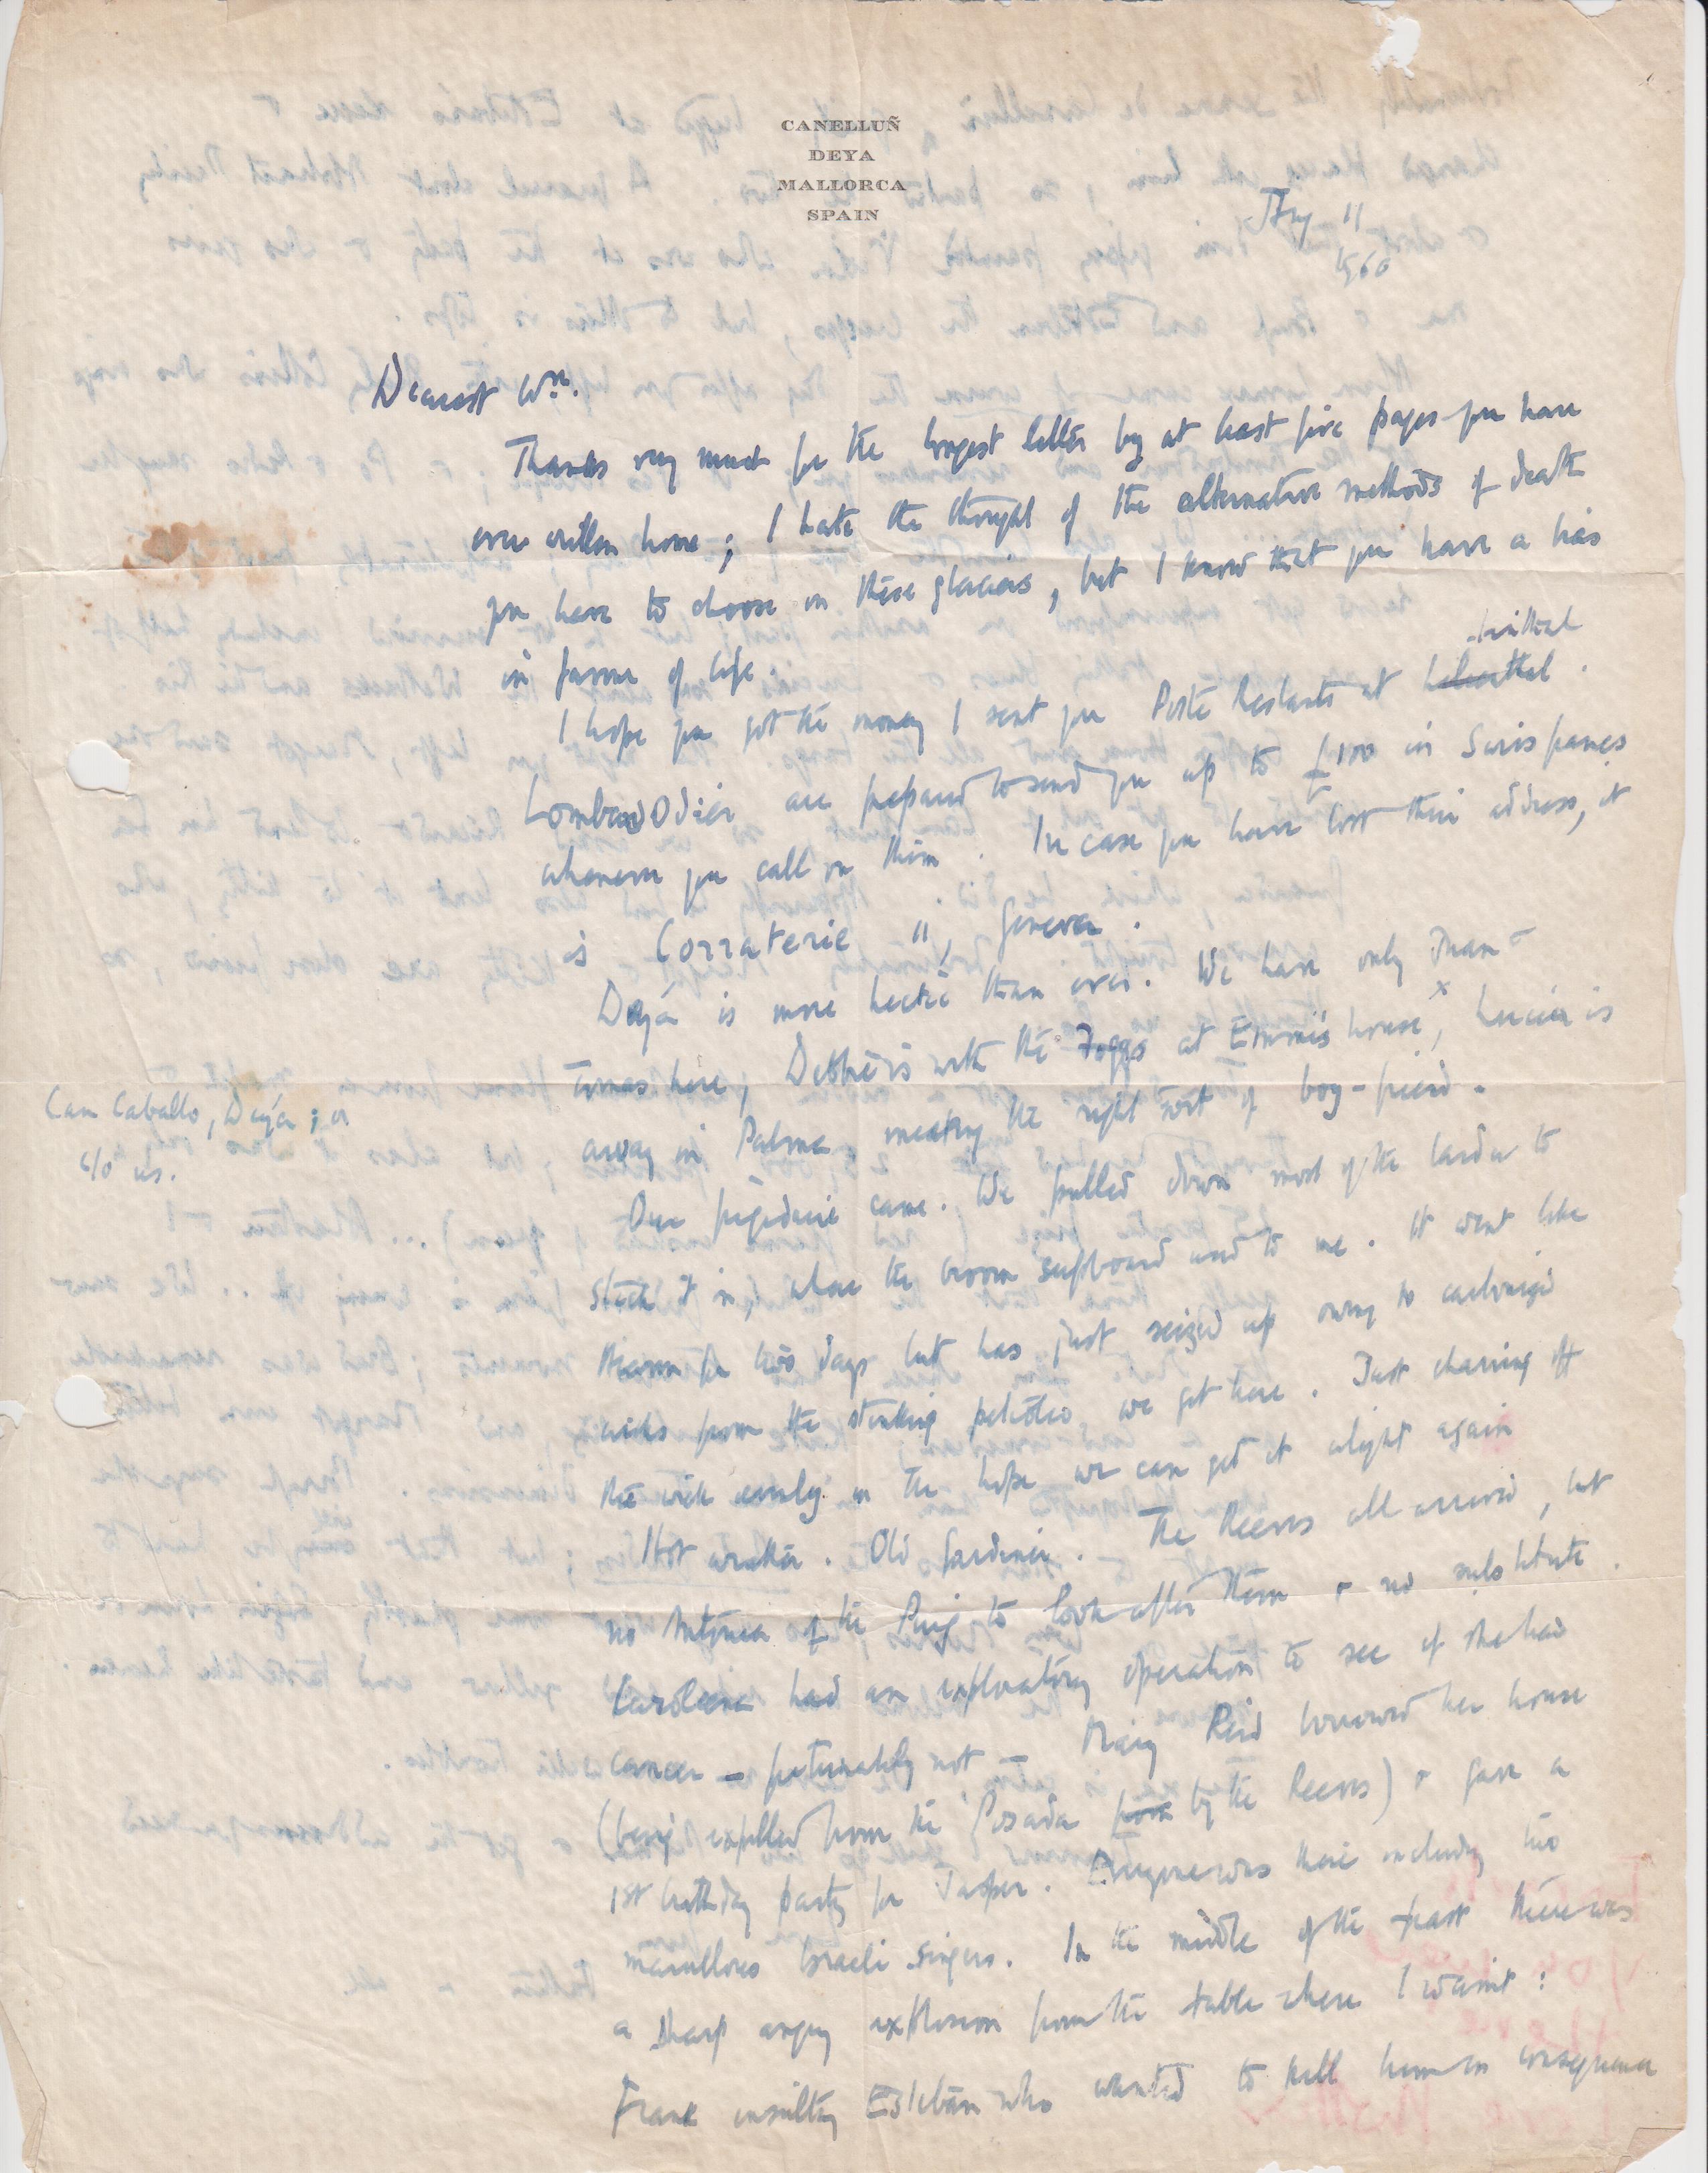 CANELLUÑ
DEYA
MALLORCA
SPAIN
July 11
1960
Dearest Wm.
Thanks very much for the longest letter by at least five pages you have
ever written home; I hate the thought of the alternative methods of death
you have to choose on these glaciers, but I know that you have a bias
in favour of life.
I hope you got the money I sent you Poste Restante at
Lombard Odier are prepared to send you up to £100 in Swiss francs
whenever you call on them. In case you have lost their address, it
is Corraterie 11, Geneva.
Deyá is more hectic than ever. We have only Juan &
Tomas here, Debbie is with the Foggs at Emmie's house, x Lucia is
away in Palma, meeting the right sort of boy-friend.
Can Caballo, Deyá; or
c/o us.
Our frigidaire came. We pulled down most of the larder to
stick it in, where the broom cupboard used to be. It went like
for two days but has just seized up owing to carbonized
wicks from the stinking petroleo we get here. Just shaving off
the wick evenly in the hope we can get it alight again
Hot weather. Old Gardiner. The Reeves all arrived, but
no Antonia of the Puig to look after them & no substitute.
had an exploratory operation to see if she had
cancer – fortunately not – Mary Reid borrowed her house
(being expelled from the Posada by the Reeves) & gave a
1st birthday party for Jasper. Everyone was there including two
marvellous Israeli singers. In the middle of the feast there was
a sharp angry explosion from the table where I wasn't:
Frank insulting Esteban who wanted to kill him in consequence